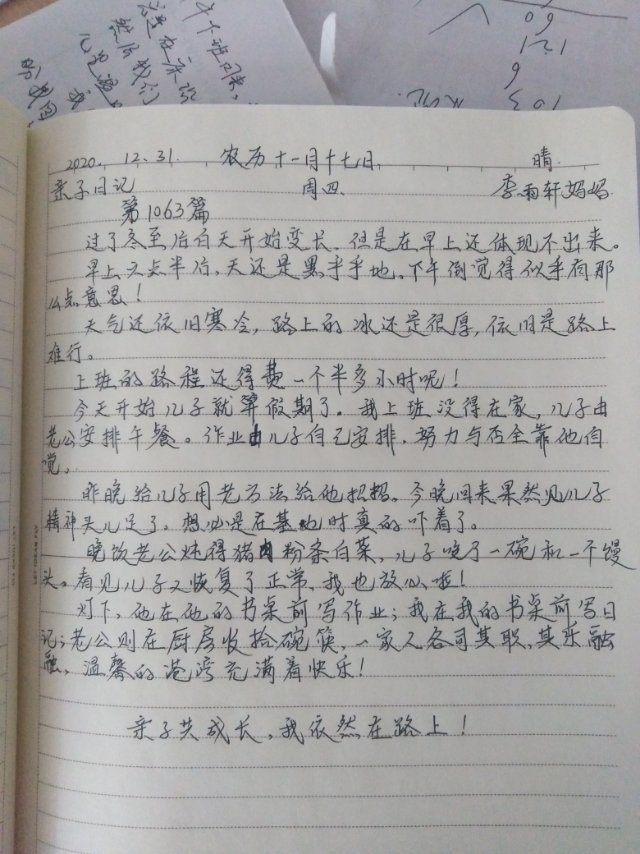 2020. 12. 31. 农历十一月十七日. 晴.
亲子日记 周四. 李雨轩妈妈.
第1063篇
过了冬至后白天开始变长, 但是在早上还体现不出来。
早上六点半后, 天还是黑乎乎地, 下午倒觉得似乎有那
么点意思!
天气还依旧寒冷, 路上的冰还是很厚, 依旧是路上
难行。
上班的路程还得费一个半多小时呢!
今天开始儿子就算假期了。我上班没得在家, 儿子由
老公安排午餐。作业由儿子自己安排, 努力与否全靠他自
觉。
昨晚给儿子用老方法给他招招, 今晚回来果然见儿子
精神头儿足了。想必是在基地时真的吓着了。
晚饭老公炖得猪肉粉条白菜, 儿子吃了一碗和一个馒
头。看见儿子又恢复了正常, 我也放心啦!
灯下, 他在他的书桌前写作业; 我在我的书桌前写日
记; 老公则在厨房收拾碗筷, 一家人各司其职, 其乐融
融, 温馨的港湾充满着快乐!
亲子共成长, 我依然在路上!
60
121
6